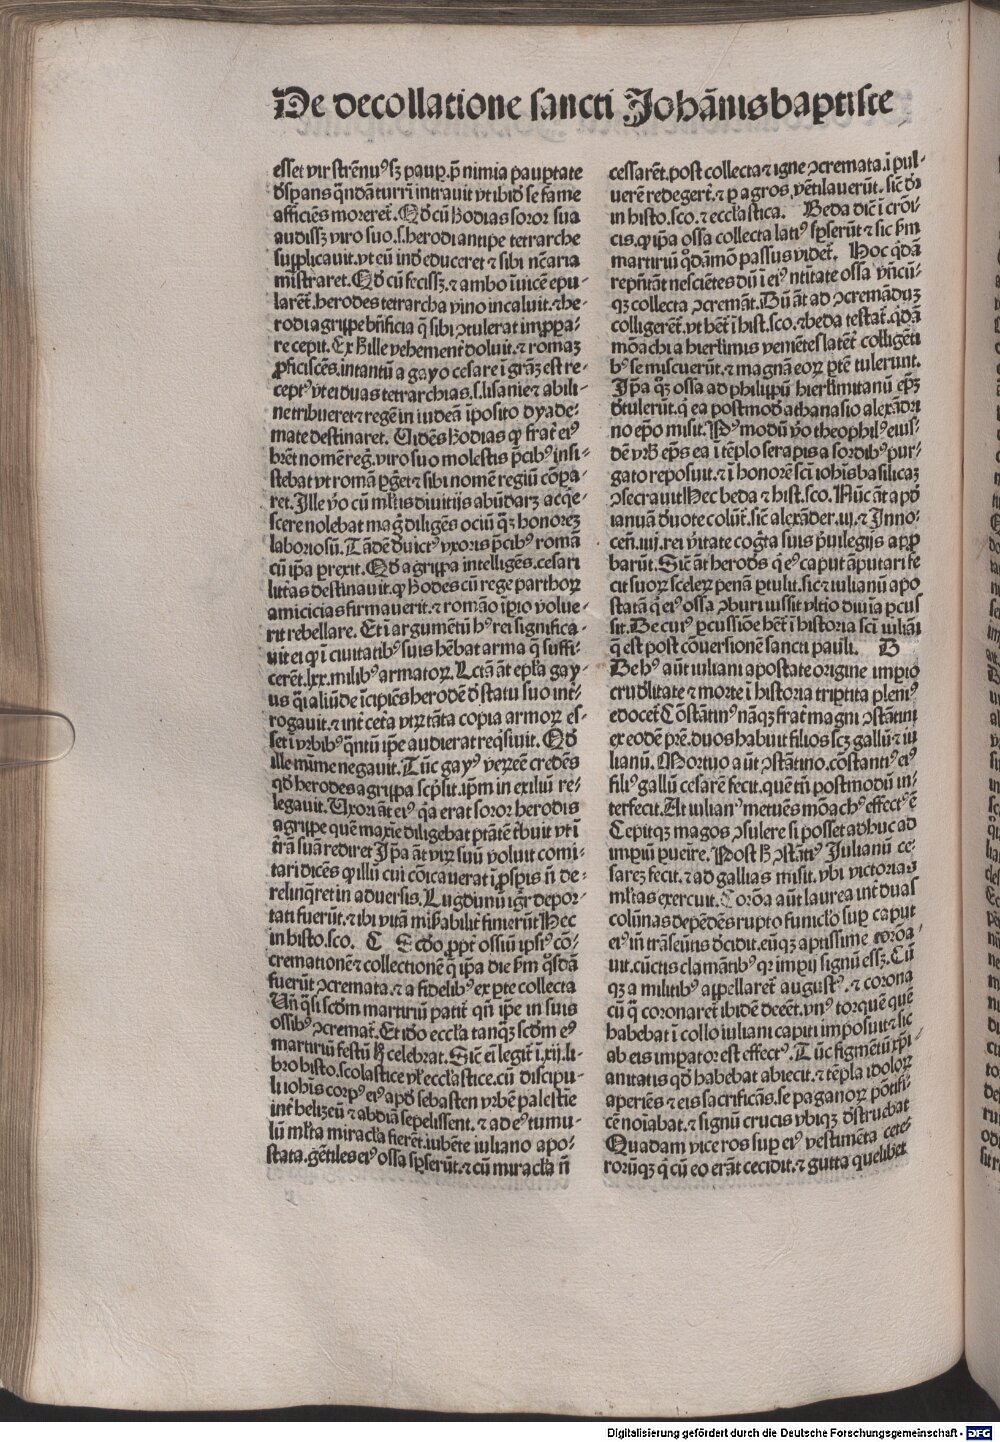 De decollatione sancti Johānis baptiste
esset vir strēnuꝰ sꝫ paup. p̄ nimia paup̱tate
dsp̱ans q̄ndā turrī intrauit vt ibid se fame
afficiēs moreret̄. Qd cū h̄odias soror sua
audissꝫ viro suo .s. herodi antipe tetrarche
supplicauit. vt eū ind educeret ⁊ sibi nc̄aria
mistraret. Qd cū fecissꝫ. ⁊ ambo īuicē epu-
larēt̄. herodes tetrarcha vino incaluit. ⁊ he-
rodi agrippe bn̄ficia q̄ sibi ꝯtulerat imp̱pa-
re cepit. Ex h̄ ille vehement̄ doluit. ⁊ romaꝫ
ꝓficiscēs. in tantū a gayo cesare ī grāꝫ est re-
ceptꝰ vt ei duas tetrarchias .s. lisanie ⁊ abili-
ne tribueret ⁊ regē in iudeā īposito dyade-
mate destinaret. Uidēs h̄odias ꝙ frat̄ eiꝰ
hr̄et nomē reḡ. viro suo molestis p̄cibꝰ insi-
stebat vt romā ꝑget ⁊ sibi nomē regiū cōpa-
ret. Ille v̄o cū ml̄tis diuitijs abūdaꝫ acq̄e-
scere nolebat mag̱ diligēs ociū q̄ꝫ honoreꝫ
laboriosū. Tādē deuictꝰ vxoris p̄cibꝰ romā
cū ip̄a ꝑrexit. Qd agrippa intelligēs. cesari
litt̄as destinauit. ꝙ h̄odes cū rege parthoꝝ
amicicias firmauerit. ⁊ romāo īꝑio volue-
rit rebellare. Et ī argumētū hꝰ rei significa-
uit ei ꝙ ī ciuitatibꝰ suis hēbat arma q̄ suffi-
cerēt. lxx. milibꝰ armatoꝝ. Lectā āt epl̄a gay-
us q̄i aliūde īcipiēs herodē d statu suo int̄-
rogauit. ⁊ int̄ cet̄a vtꝝ tāta copia armoꝝ es-
set ī vrbibꝰ q̄ntū ip̄e audierat reqsiuit. Qd
ille mīme negauit. Tūc gayꝰ veꝝ eē credēs
qd herodes agrippa scp̄sit. ip̄m in exiliū re-
legauit. Uxori āt eiꝰ q̄a erat soror herodis
agrippe quē maxīe diligebat ptātē tbuit vt ī
tr̄ā suā rediret Ip̄a āt viꝝ suū voluit comi-
tari dicēs ꝙ illū cui cōicauerat ī ꝓspis n̄ de-
relinq̄ret in aduersis. Lugdunū igr̄ depor-
tati fuerūt. ⁊ ibi vitā misabilit̄ finierūt Hec
in histo. sco. C Scdo ꝓpt̄ ossiū ipsiꝰ cō-
cremationē ⁊ collectionē q̄ ip̄a die fm̄ q̄sdā
fuerūt ꝯcremata. ⁊ a fidelibꝰ ex ꝑte collecta
Un̄ q̄si scdm martiriū patit̄ qn̄ ip̄e in suis
ossibꝰ ꝯcremat̄. Et ido eccl̄a tanq̄ꝫ scdm eꝰ
martiriū festū h̄ celebrat. Sic̄ ei legit̄ ī .xij. li-
bro histo. scolastice vl̄ eccl̄astice. cū discipu-
li iohis corpꝰ eiꝰ apd sebasten vrbē palestīe
int̄ helizeū ⁊ abdiā sepelissent. ⁊ ad eꝰ tumu-
lū ml̄ta miracl̄a fierēt. iubēte iuliano apo-
stata. gētiles eiꝰ ossa sp̱serūt. ⁊ cū miracl̄a n̄
cessarēt. post collecta ⁊ igne ꝯcremata. ī pul-
uerē redegert̄. ⁊ ꝑ agros vētilauerūt. sic̄ dr̄
in histo. sco. ⁊ eccl̄astica. Beda dic̄ ī crōi-
cis. ꝙ ip̄a ossa collecta latiꝰ sp̱serūt ⁊ sic fm̄
martiriū q̄dāmō passus videt̄. Hoc q̄dā
rep̄ntāt nescientes dū ī eiꝰ ntitate ossa vn̄cū-
qꝫ collecta ꝯcremāt. Dū āt ad ꝯcremādūꝫ
colligerēt̄. vt het̄ ī hist. sco. ⁊ beda testat̄. q̄dā
mōachi a hierl̄imis veniētes latēt̄ colligēti
bꝰ se miscuerūt. ⁊ magnā eoꝝ ꝑtē tulerunt.
Ip̄a qꝫ ossa ad philippū hierl̄imitanū ep̄ꝫ
dtulerūt. q̄ ea postmod athanasio alexādri
no ep̄o misit. Pꝰ modū v̄o theophilꝰ eius-
dē vrb̄ ep̄s ea ī tēplo serapis a sordibꝰ pur-
gato reposuit. ⁊ ī honorē scī iohīs basilicaꝫ
ꝯsecrauit Hec beda ⁊ hist. sco. Nūc āt apd
ianuā duote colūt̄. sic̄ alexāder .iij. ⁊ Inno-
cen̄. iiij. rei v̄itate cog̱ta suis p̄uilegijs app̱
barūt. Sic̄ āt herods q̄ eꝰ caput āputari fe
cit suoꝝ sceleꝝ penā ꝑtulit. sic ⁊ iulianū apo
statā q̄ eiꝰ ossa ꝯburi iussit vltio diuīa ꝑcus
sit. De cuiꝰ ꝑcussiōe het̄ ī historia scī iuliāi
q̄ est post cōuersionē sancti pauli. D
De hꝰ aūt iuliani apostate origine impio
crudlitate ⁊ morte ī historia triptita pleniꝰ
edocet̄ Cōstātinꝰ nāqꝫ frat̄ magni ꝯstātini
ex eodē pr̄e. duos habuit filios scꝫ gallū ⁊ iu
lianū. Mortuo aūt ꝯstātino. cōstantiꝰ eiꝰ
filiꝰ gallū cesarē fecit. quē tn̄ postmodū in-
terfecit. At iulianꝰ metuēs mōachꝰ effectꝰ ē
Cepitqꝫ magos ꝯsulere si posset adhuc ad
imꝑiū ꝑueīre. Post h̄ ꝯstātiꝰ Julianū ce-
sarēꝫ fecit. ⁊ ad gallias misit. vbi victorias
ml̄tas exercuit. Corōa aūt laurea int̄ duas
colūnas depēdēs rupto funicl̄o sup caput
eiꝰ īn̄ trāseūtis dcidit. eūqꝫ aptissime corōa-
uit. cūctis clamātibꝰ qꝛ impij signū essꝫ. Cū
qꝫ a militibꝰ appellaret̄ augustꝰ. ⁊ corona
cū q̄ coronaret̄ ibidē deēt. vnꝰ torquē quē
habebat ī collo iuliani capiti imposuit ⁊ sic
ab eis imꝑator est effectꝰ. Tūc figmētū xp̄i-
anitatis qd habebat abiecit. ⁊ tēpla idoloꝝ
aperiēs ⁊ eis sacrificās. se paganoꝝ pōtifi-
cē noīabat. ⁊ signū crucis vbiqꝫ dstruebat
Quadam vice ros sup eiꝰ vestimēta cete-
rorūqꝫ q̄ cū eo erāt cecidit. ⁊ gutta quelibet
Digitalisierung gefördert durch die Deutsche Forschungsgemeinschaft - DFG